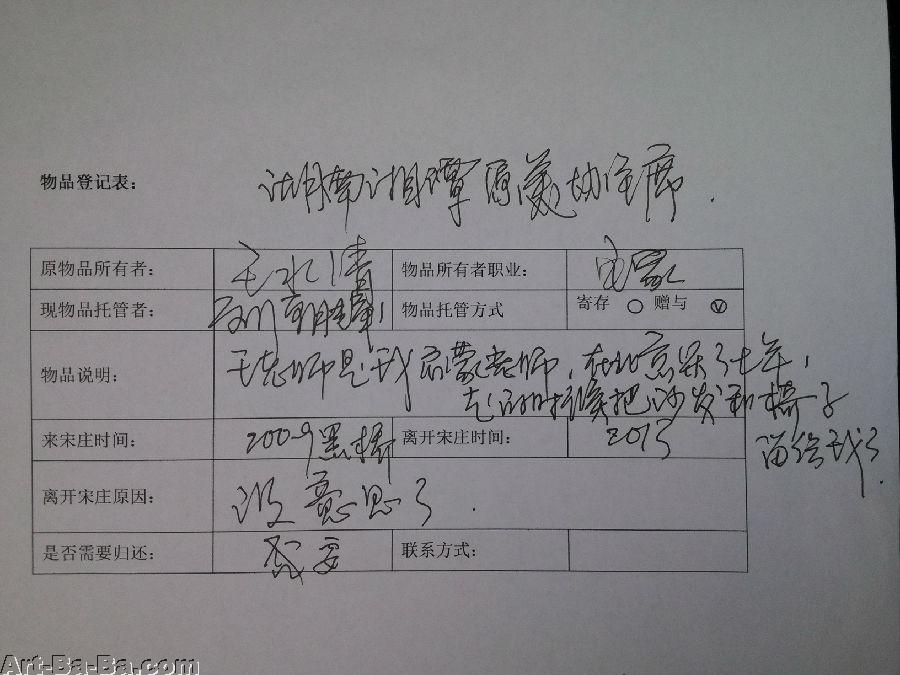 物品登记表： 湖南湘潭 美协主席.
原物品所有者： 王水清 物品所有者职业： 画家
现物品托管者： 物品托管方式 寄存 ○ 赠与 ⓥ
物品说明： 王老师是我启蒙老师，在北京呆了七年，
走的时候把沙发和椅子
留给我了.
来宋庄时间： 2009黑桥 离开宋庄时间： 2013
离开宋庄原因： 没意思了.
是否需要归还： 联系方式：
Art-Ba-Ba.com